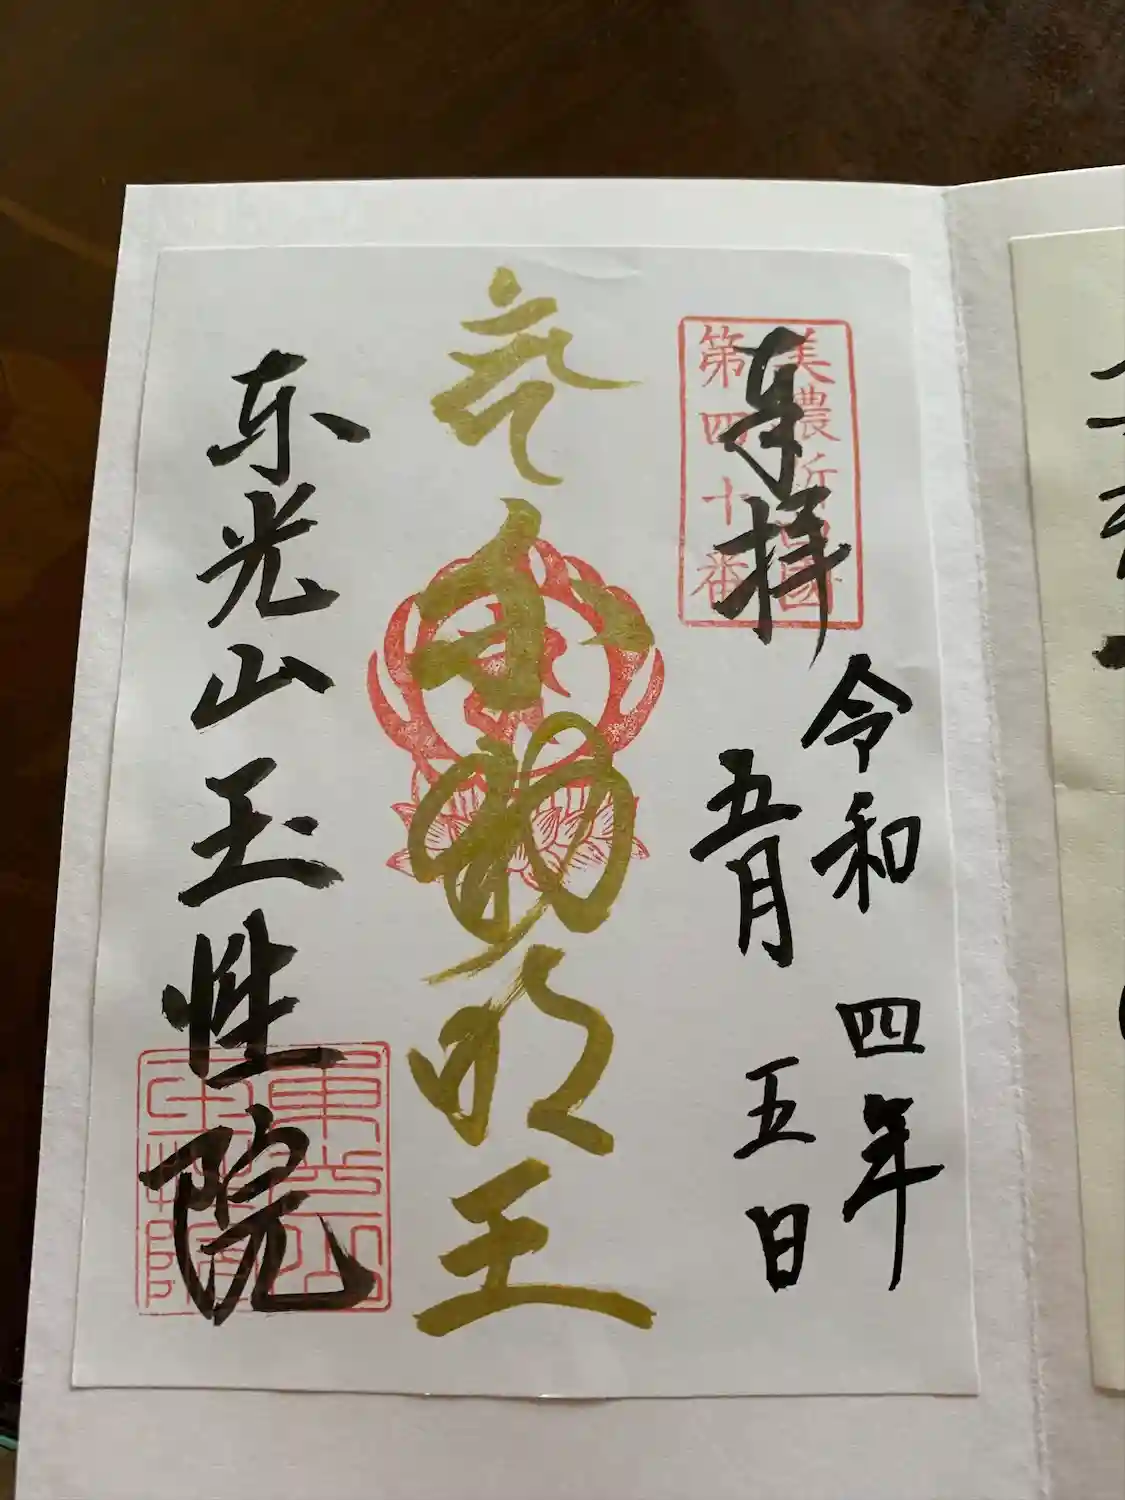 奉拝
美濃新四國
第四十番
令和四年
五月五日
不動明王
東光山玉性院
東光山
玉性院